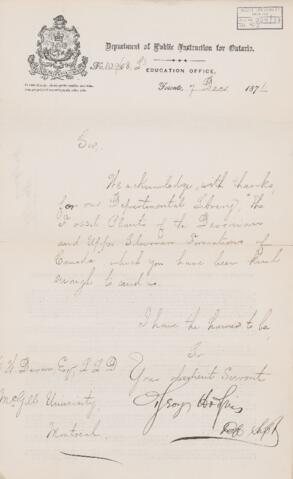 Department of Public Instruction for Ontario.
No. 10,968, D
EDUCATION OFFICE,
Toronto, 7 Decr. 1871
Sir,
We acknowledge, with thanks,
for our Departmental Library, "The
Fossil Plants of the Devonian
and Upper Silurian Formations of
Canada, which you have been kind
enough to send us.
I have the honor to be,
Sir
Your obedient Servant
George Hodgins
J W Dawson Esq, LLD
McGill University,
Montreal.